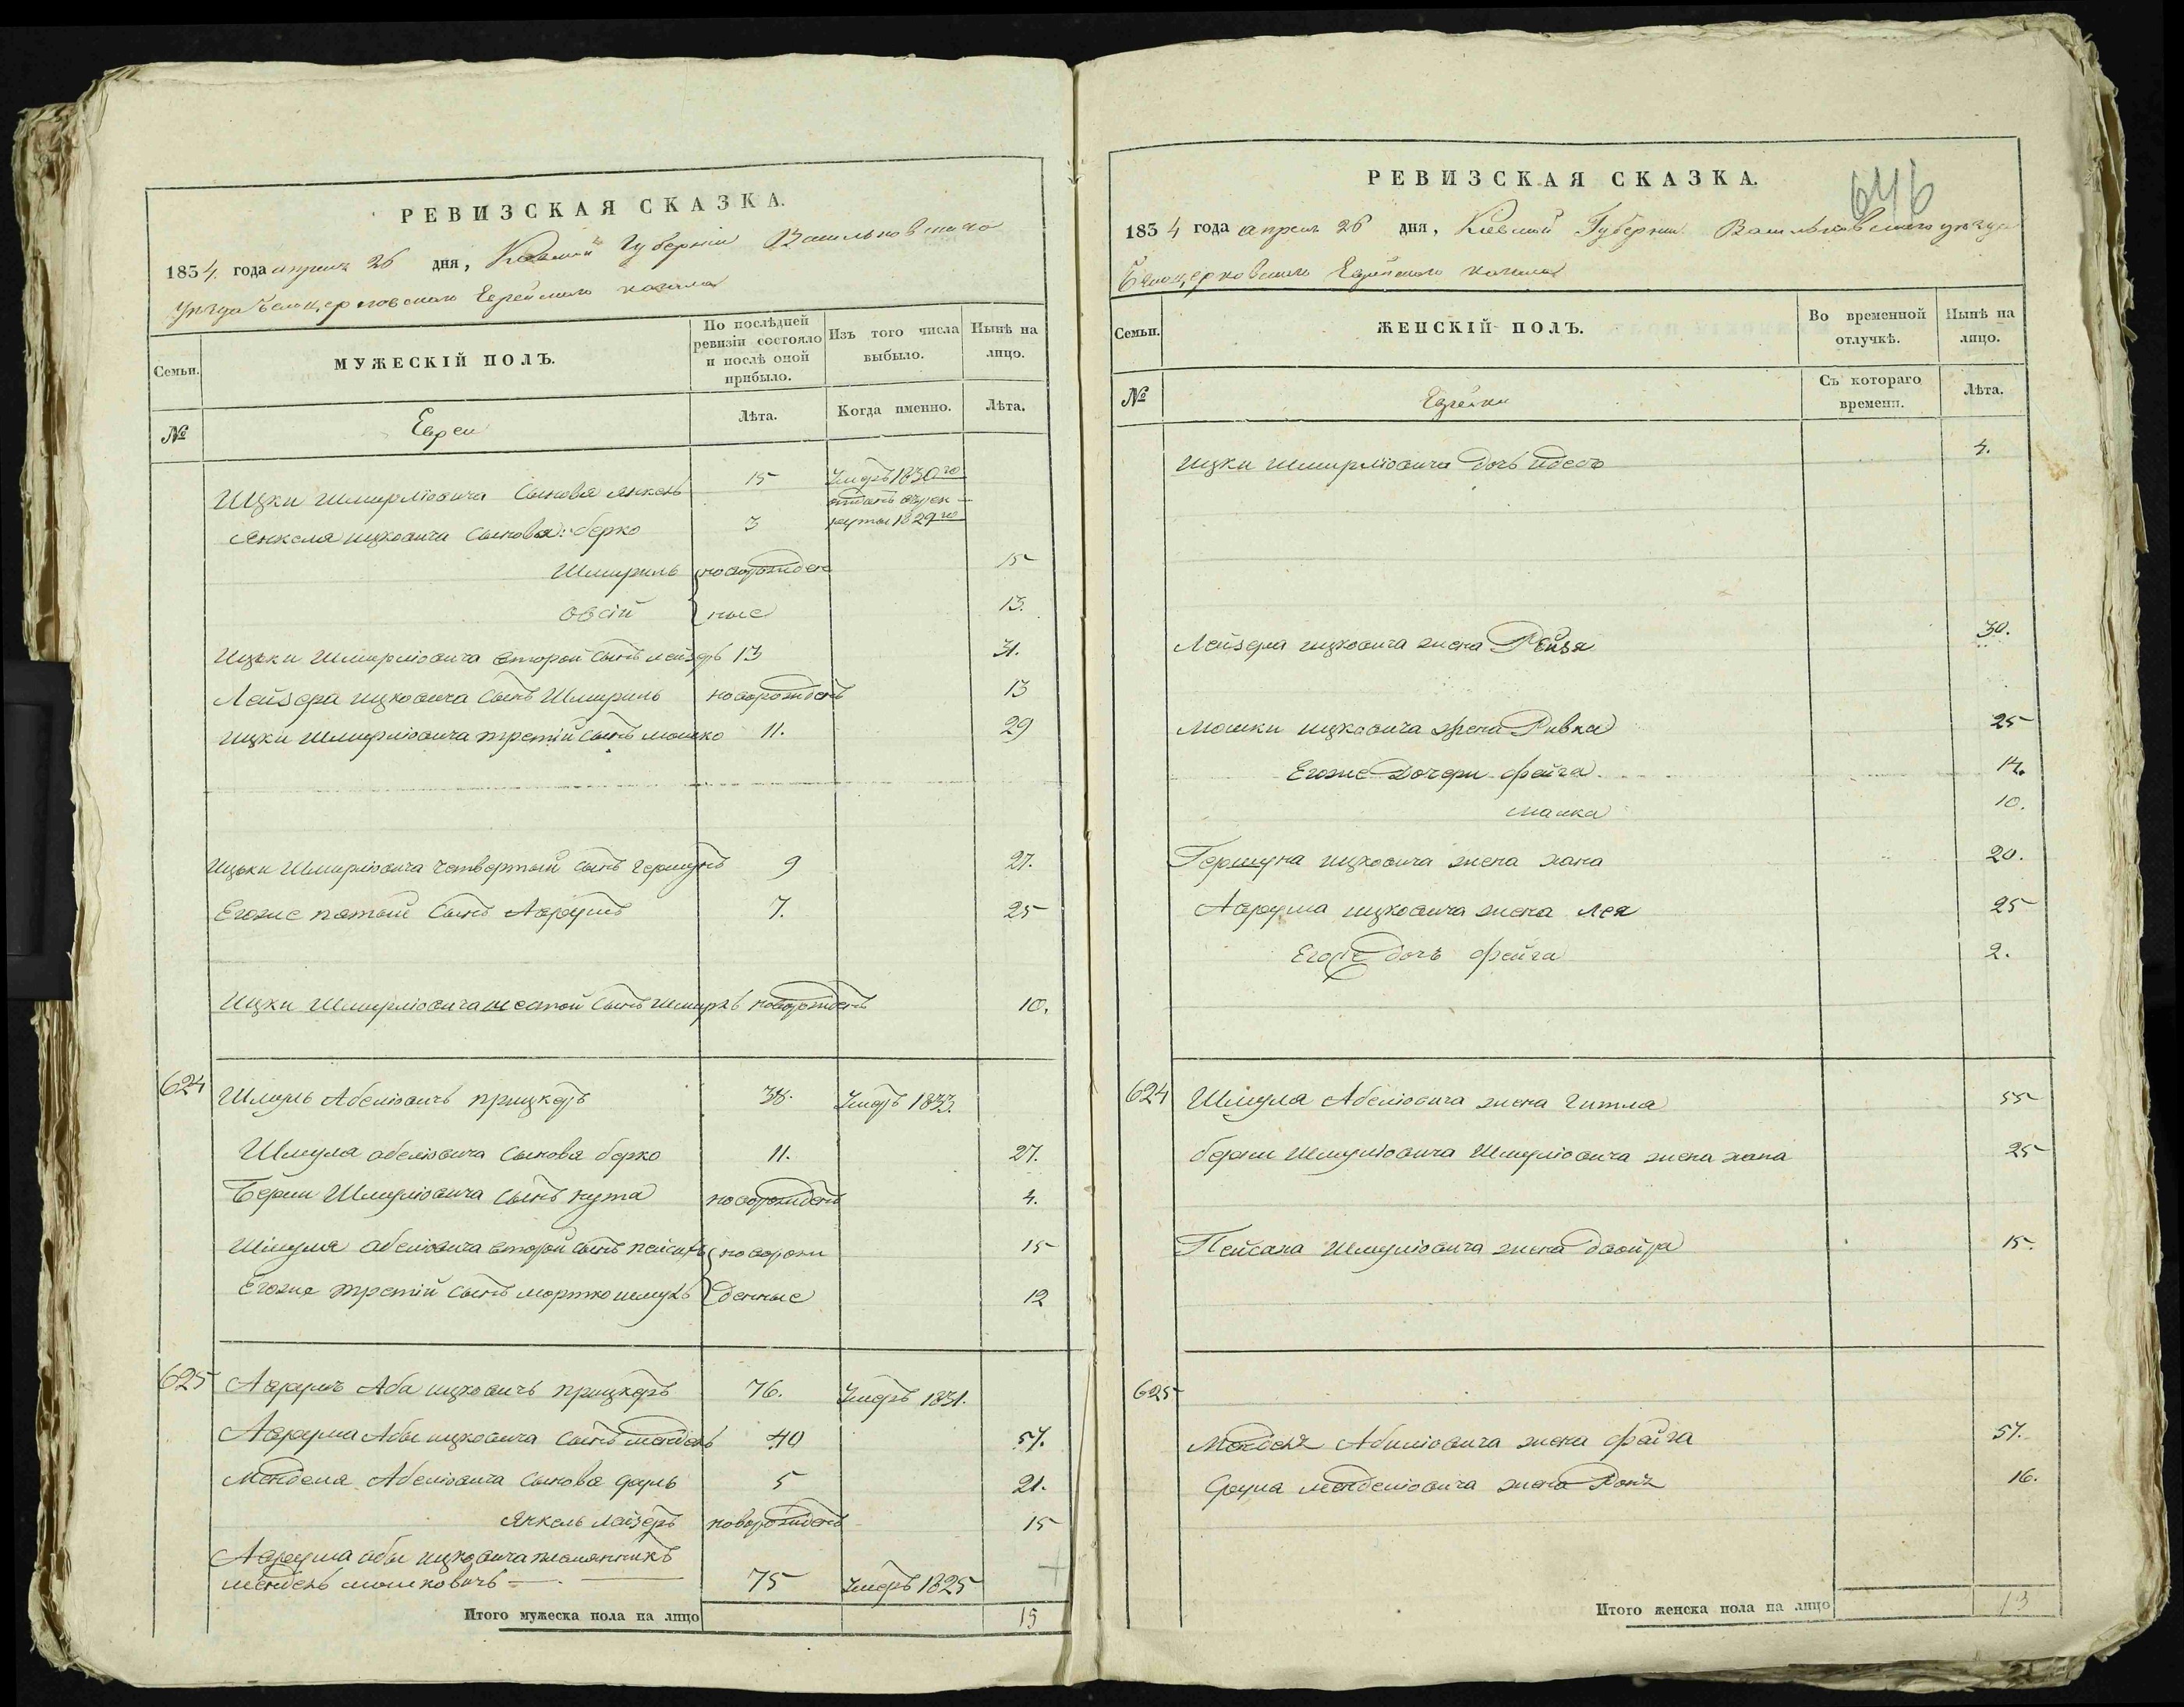 РЕВИЗСКАЯ СКАЗКА.
1834 года апреля 26 дня, Киевской Губернии Васильковскаго
уезда Белоцерковскаго Еврейскаго кагала
Семьи. МУЖЕСКІЙ ПОЛЪ. По послѣдней ревизіи состояло и послѣ оной прибыло. Изъ того числа выбыло. Нынѣ на лицо.
№ Евреи Лѣта. Когда именно. Лѣта.
Ицки Шмирліовича Сыновя Янкель 15 Умеръ 1830го
Янкеля ицковича Сыновя: берко 3 отданъ врекруты 1829го
Шмириль новорожден 15
овсій ные 13.
Ицьки Шмирліовича второй Сынъ лейзеръ 13 31.
Лейзера ицковича Сынъ Шмириль новорожденъ 13
ицки Шмирліовича третій Сынъ мошко 11. 29
Ицьки Шмирліовича четвертый Сынъ гершунъ 9 27.
Егоже пятый Сынъ Аврумъ 7. 25
Ицки Шмирліовича шестой Сынъ новорожденъ 10.
624 Шмуль Абеліовичъ прицкеръ 38. Умеръ 1833.
Шмуля абеліовича Сыновя берко 11. 27.
Берки Шмуліовича Сынъ нута новорожденъ 4.
Шмуля абеліовича второй Сынъ пейсахъ новорож 15
Егоже третій Сынъ мортко шмуль денные 12
625 Аврумъ Аба ицковичъ прицкеръ 76. Умеръ 1831.
Аврума Абы ицковича Сынъ мендель 40 57.
Менделя Абеліовича Сыновя сруль 5 21.
Янкель лейзеръ новорожденъ 15
Аврума абы ицковича племянникъ
мендель мошковичъ 75 Умеръ 1825
Итого мужеска пола на лицо 15
РЕВИЗСКАЯ СКАЗКА.
646
1834 года апреля 26 дня, Киевской Губернии Васильковскаго уезда
Белоцерковскаго Еврейскаго кагала
Семьи. ЖЕНСКІЙ ПОЛЪ. Во временной отлучкѣ. Нынѣ на лицо.
№ Еврейки Съ котораго времени. Лѣта.
ицки шмирліовича дочь идесъ 4.
Лейзера ицковича жена Рейзя 30.
мошки ицковича жена Ривка 25
Егоже Дочери фейга 14.
малка 10.
Гершуна ицковича жена хана 20.
Аврума ицковича жена лея 25
Егоже дочь фейга 2.
624 Шмуля Абеліовича жена гитля 55
берки Шмуліовича Шмуліовича жена хана 25
Пейсаха шмуліовича жена двойра 15.
625
Мендель Абиліовича жена фейга 57.
Сруля менделіовича жена 16.
Итого женска пола на лицо 13